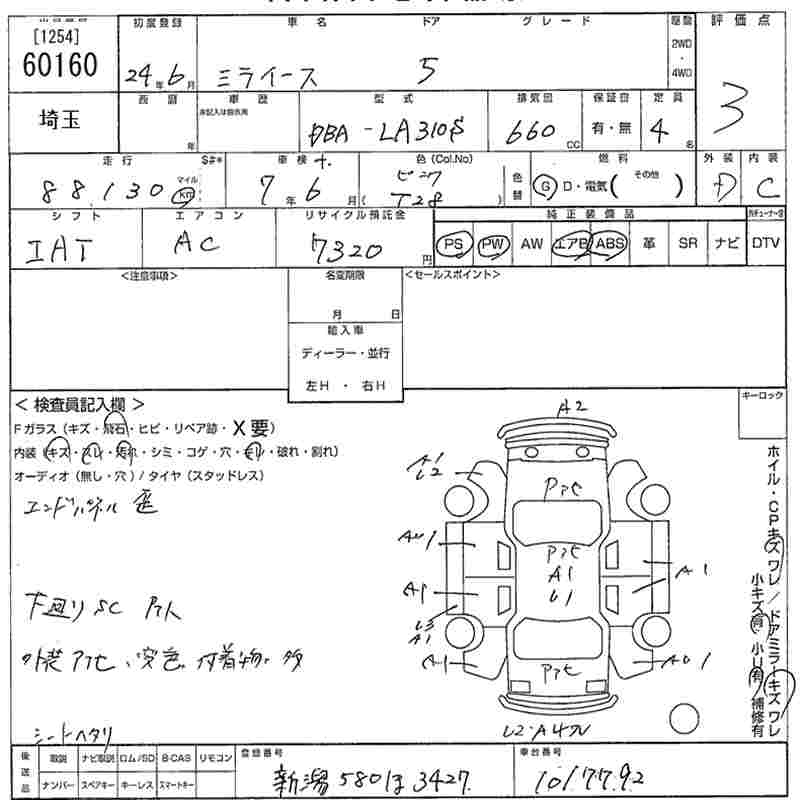 [1254]
60160
埼玉
初度登録
24年6月
車名
ミライース
ドア
5
グレード
駆動
2WD
・
4WD
評価点
3
西暦
年
車歴
型式
DBA-LA310S
排気量
660 CC
保証書
有・無
定員
4名
走行
88,130
マイル
km
S#*
車検
7年6月
色(Col.No)
T28
色替
燃料
G D・電気 ( その他 )
外装
D
内装
C
シフト
IAT
エアコン
AC
リサイクル預託金
7320円
純正装備品
PS PW AW エアB ABS 革 SR ナビ DTV
<注意事項>
名変期限
月 日
<セールスポイント>
輸入車
ディーラー・並行
左H ・ 右H
＜検査員記入欄＞
Fガラス(キズ・飛石・ヒビ・リペア跡・X要)
内装(キズ・スレ・汚れ・シミ・コゲ・穴・モリ・破れ・割れ)
オーディオ(無し・穴)/タイヤ(スタッドレス)
エンドパネル 歪
下廻りSC
外装アセ、変色、付着物、多
シートヘタリ
キーロック
ホイル・CPキズワレ/ドアミラーキズワレ
小キズ有 小U有 補修有
A2
A1
U2
AU1
A1
U3
A1
A1
アセ
アセ
A1
U1
A1
アセ
AU1
後送品
取説 ナビ取説 ロム/SD B-CAS リモコン
ナンバー スペアキー キーレス スマートキー
登録番号
新潟 580 ほ 3427
車台番号
1017792